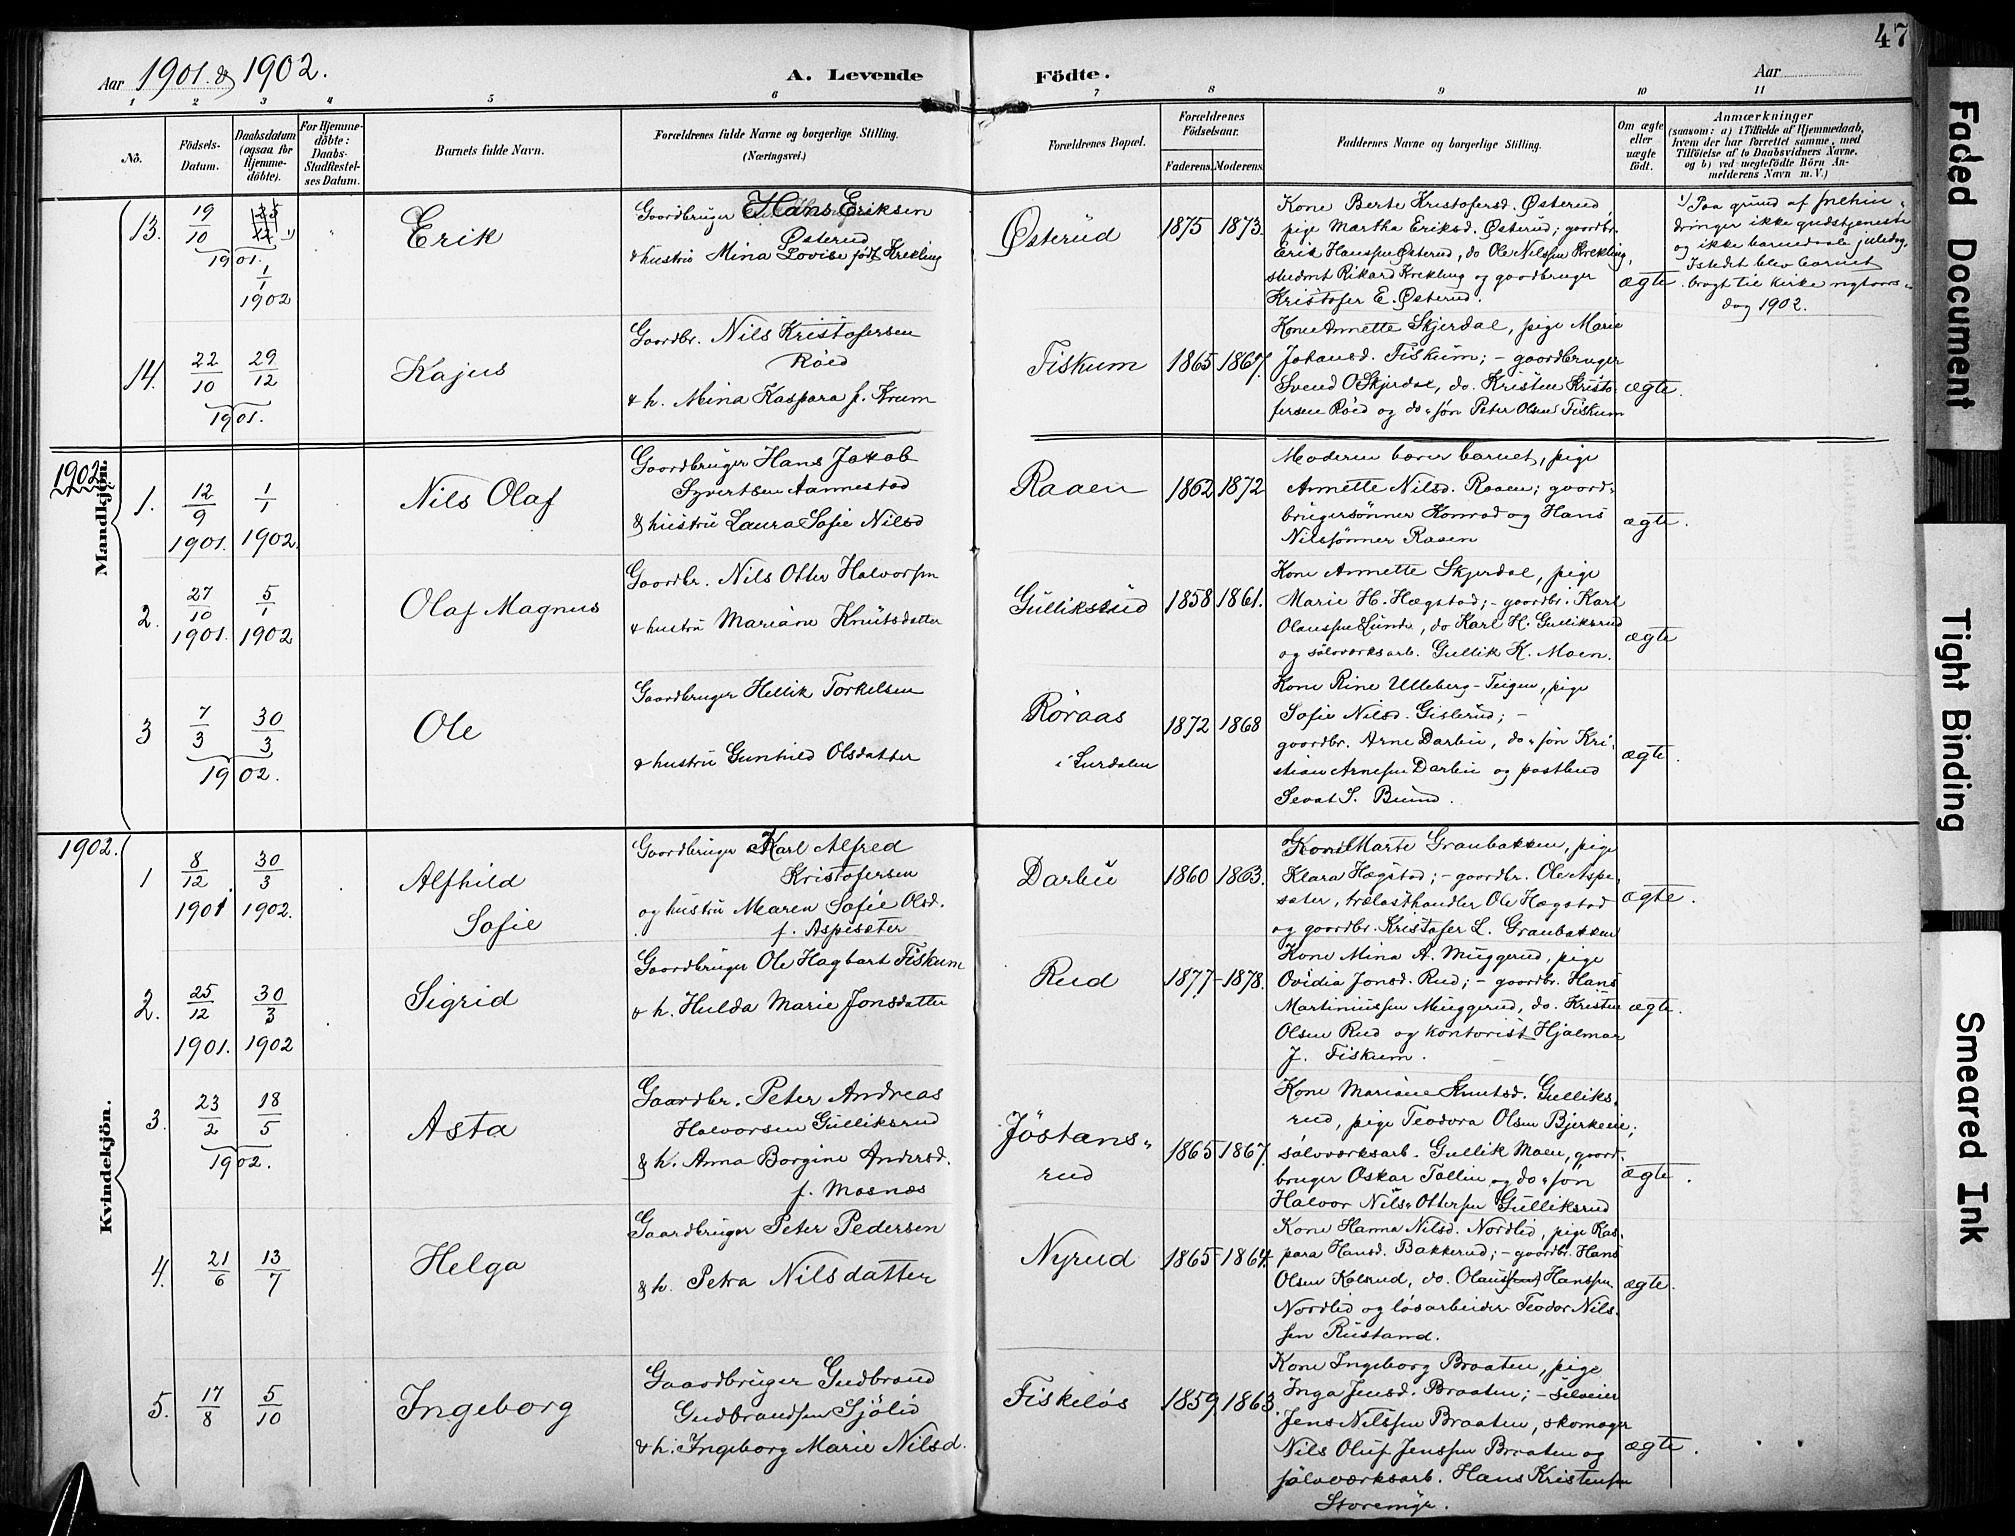 47
Aar 1901. & 1902.
A. Levende Födte.
Aar
1 2 3 4 5 6 7 8 9 10 11
No.
Födsels-Datum.
Daabsdatum (ogsaa for Hjemme-döbte).
For Hjemme-döbte: Daabs-Stadfæstel-ses Datum.
Barnets fulde Navn.
Forældrenes fulde Navne og borgerlige Stilling.
(Næringsvei.)
Forældrenes Bopæl.
Forældrenes Födselsaar.
Faderens. Moderens.
Faddernes Navne og borgerlige Stilling.
Om ægte eller uægte födt.
Anmærkninger
(saasom: a) i Tilfælde af Hjemmedaab,
hvem der har forrettet samme, med
Tilföielse af to Daabsvidners Navne,
og b) ved uægtefödte Börn An-
melderens Navn m. V.)
13. 19/10 1901. 1/1 1902
Erik
Gaardbruger Hans Eriksen
Østerud
& hustru Mina Lovise født Krekling
Østerud
1875 1873.
Kone Berte Kristofersd. Østerud,
pige Martha Eriksd. Østerud; gaardbr.
Erik Hanssen Østerud, do Ole Nilssen Krekling,
student Rikard Krekling og gaardbruger
Kristofer E. Østerud.
ægte
1) Paa grund af forhin-
dringer ikke gudstjeneste
og ikke barnedaab juledag.
Istedet blev barnet
bragt til kirke nytaars-
dag 1902.
14. 22/10 29/12 1901.
Kajus
Gaardbr. Nils Kristofersen
Røed
& h. Mina Kaspara f. Krum
Fiskum
1865 1867.
Kone Annette Skjerdal, pige Marie
Johansd. Fiskum; - gaardbruger
Svend O Skjerdal, do. Kristen Kristo-
fersen Røed og do-søn Peter Olsen Fiskum
ægte.
1902.
Mandkjön.
1. 12/9 1901. 1/1 1902.
Nils Olaf
Gaardbruger Hans Jakob
Syvertsen Aannestad
& hustru Laura Sofie Nilsd
Raaen
1862 1872
Moderen bærer barnet, pige
Annette Nilsd. Raaen; gaard-
brugersønner Konrad og Hans
Nilssønner Raaen
ægte.
2. 27/10 1901. 5/1 1902
Olaf Magnus
Gaardbr. Nils Otter Halvorsen
& hustru Mariane Knutsdatter
Gulliksrud
1858 1861.
Kone Annette Skjerdal, pige
Marie H. Hægstad; - gaardbr. Karl
Olaussen Lunde, do Karl H. Gulliksrud
og sølvværksarb. Gullik K. Moen.
ægte
3 7/3 30/3 1902.
Ole
Gaardbruger Hellik Torkelsen
& hustru Gunhild Olsdatter
Røraas
i Surdalen
1872 1868
Kone Rine Ulleberg-Teigen, pige
Sofie Nilsd. Gislerud; -
gaardbr. Arne Darbu, do-søn Kri-
stian Arnesen Darbu og postbud
Sevat S. Bund.
ægte.
1902.
Kvindekjön.
1 8/12 1901. 30/3 1902.
Alfhild
Sofie
Gaardbruger Karl Alfred
Kristofersen
og hustru Maren Sofie Olsd.
f. Aspesæter
Darbu
1860 1863.
Kone Marte Granbakken, pige
Klara Hægstad; - gaardbr. Ole Aspe-
sæter, trælasthandler Ole Hægstad
og gaardbr. Kristofer L. Granbakken
ægte.
2. 25/12 1901. 30/3 1902
Sigrid
Gaardbruger Ole Hagbart Fiskum
& h. Hulda Marie Jonsdatter
Rud
1877- 1878.
Kone Mina A. Muggerud, pige
Ovidia Jonsd. Rud; - gaardbr. Hans
Martiniussen Muggerud, do. Kristen
Olsen Rud og kontorist Hjalmar
J. Fiskum.
ægte.
3. 23/2 18/5 1902.
Asta
Gaardbr. Peter Andreas
Halvorsen Gulliksrud
& h. Anna Borgine Andersd.
f. Mosnæs
Jøstans-
rud
1865 1867.
Kone Mariane Knutsd. Gulliks-
rud, pige Teodora Olsen Bjerkeeie;
sølvværksarb. Gullik Moen, gaard-
bruger Oskar Tollin og do-søn
Halvor Nils-Ottersen Gulliksrud
ægte.
4. 21/6 13/7
Helga
Gaardbruger Peter Pedersen
& h. Petra Nilsdatter
Nyrud
1865- 1864.
Kone Hanna Nilsd. Nordlid, pige Kas-
para Hansd. Bakkerud; - gaardbr. Hans
Olsen Kolsrud, do. Olaus Hanssen
Nordlid og løsarbeider Teodor Nils-
sen Rustand.
ægte.
5. 17/8 5/10
Ingeborg
Gaardbruger Gudbrand
Gudbrandsen Sjølid
& h. Ingeborg Marie Nilsd.
Fiskeløs
1859. 1863.
Kone Ingeborg Braaten, pige
Inga Jensd. Braaten; - selveier
Jens Nilssen Braaten, skomager
Nils Oluf Jenssen Braaten og
sølvværksarb. Hans Kristensen
Storemyr.
ægte.
Faded Document
Tight Binding
Smeared Ink